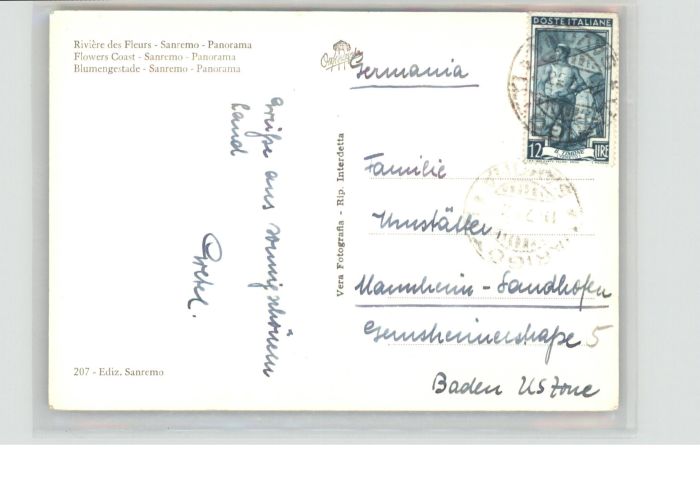 Rivière des Fleurs - Sanremo - Panorama
Flowers Coast - Sanremo - Panorama
Blumengestade - Sanremo - Panorama
Grüße aus sonnigschönem
Land
Gretel.
207 - Ediz. Sanremo
Vera Fotografia - Rip. Interdetta
POSTE ITALIANE
12 LIRE
Germania
Familie
Umstätter
Mannheim-Sandhofen
Gernsheimerstraße 5
Baden US Zone